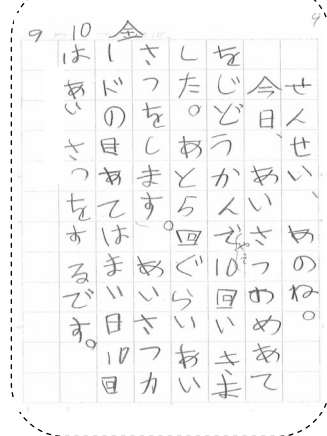 9 10 金
せんせい、あのね。
今日、あいさつのめあて
をじどうかんで10回いきま
した。あと5回ぐらいあい
さつをします。あいさつカ
ードの目あてはまい日10回
はあいさつをするです。